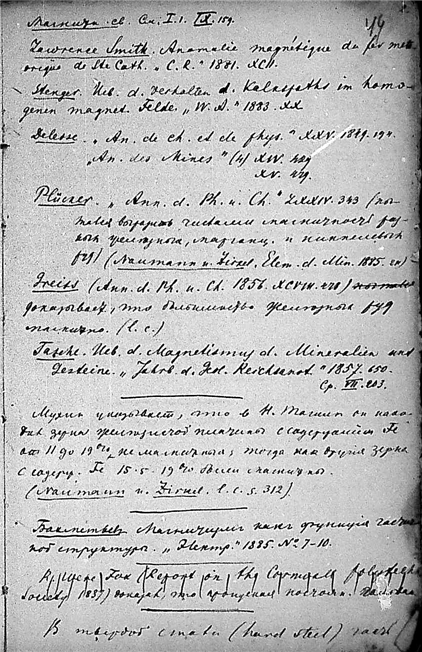 Магнизм. св. См. I.1. IX. 159.
46
Lawrence Smith. Anomalie magnétique du fer mété-
orique de Ste Cath. „C. R." 1881. XCII.
Stenger. Ueb. d. Verhalten d. Kalkspaths im homo-
genen magnet. Felde. „W. A." 1883. XX
Delesse. „An. de ch. et de phys." XXV. 1849. 194.
„An. des Mines" (4) XIV. 429
XV. 479.
Plücker. „Ann. d. Ph. u. Ch." LXXIV. 343 (пы-
тался выразить числами магничность раз-
ных железных, марганц. и никкелевых
руд) (Naumann u. Zirkel, Elem. d. Min. 1885.
Greiss (Ann. d. Ph. u. Ch. 1856. XCVIII. 478)
доказывает, что большинство железных руд
магнично. (l. c.)
Tasche. Ueb. d. Magnetismus d. Mineralien und
Gesteine. „Jahrb. d. Geol. Reichsanst." 1857. 650.
Ср. VII. 203.
указывает, что в Н. Тагиле он нахо-
дил зерна железистой платины с содержанием Fe
от 11 до 19%, не магничныя, тогда как другия зерна
с содерж. Fe 15.5 - 19% были магничны.
(Naumann u. Zirkel. l. c. s. 312).
Бахметьев. Магнитизм как функция части-
ной структуры. „Электр." 1885. № 7-10.
Fox (Report on the Cornwall Polytechn
Society 1837) доказал, что
В твердой стали (hard steel) часть